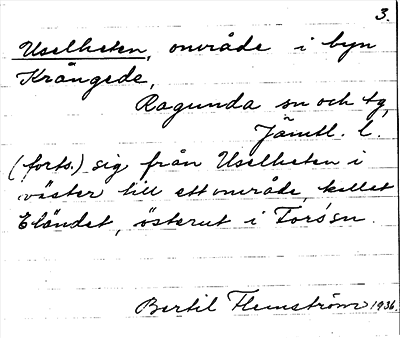 3.
Uselheten, område i byn
Krångede,
Ragunda sn och tg,
Jämtl. l.
(forts.) sig från Uselheten i
väster till ett område, kallat
Eländet, österut i Forssn.
Bertil Flemström 1936.